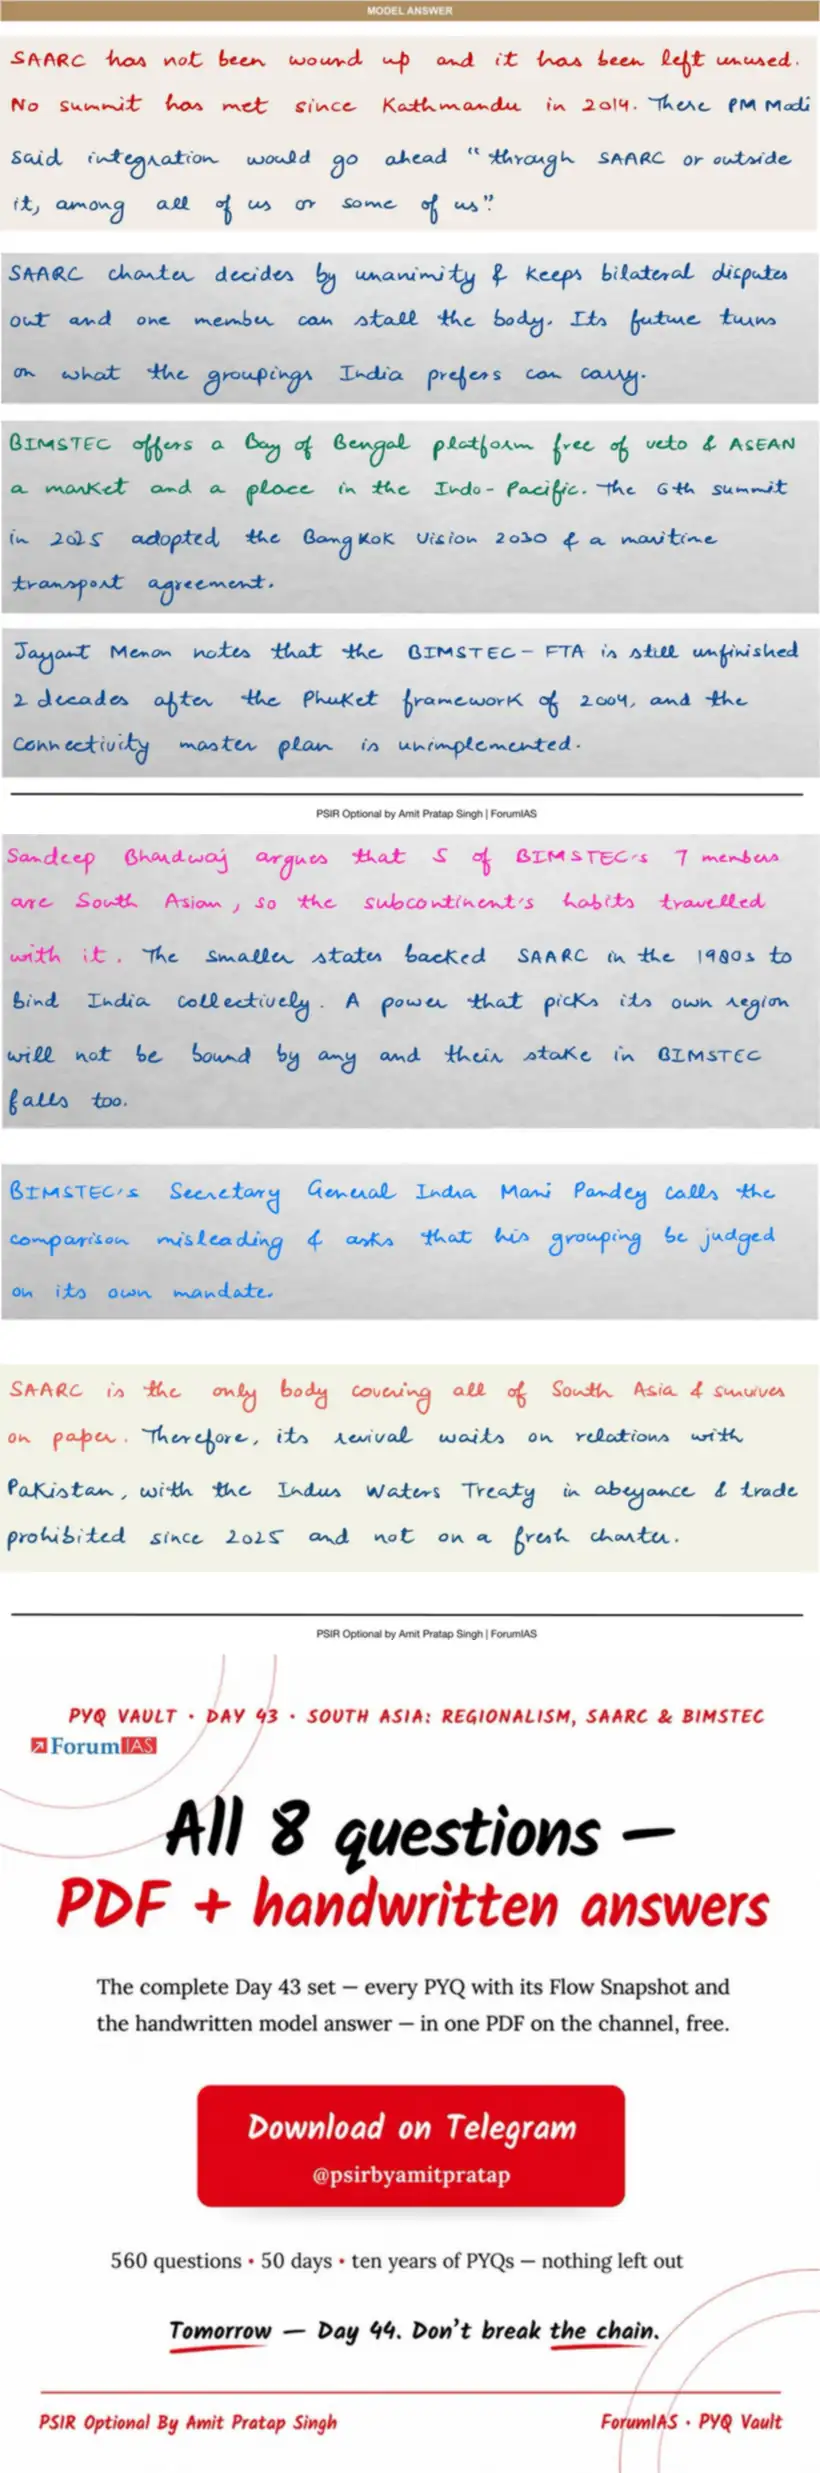 MODEL ANSWER
SAARC has not been wound up and it has been left unused.
No summit has met since Kathmandu in 2014. There PM Modi
said integration would go ahead "through SAARC or outside
it, among all of us or some of us".
SAARC charter decides by unanimity & keeps bilateral disputes
out and one member can stall the body. Its future turns
on what the groupings India prefers can carry.
BIMSTEC offers a Bay of Bengal platform free of veto & ASEAN
a market and a place in the Indo-Pacific. The 6th summit
in 2025 adopted the Bangkok Vision 2030 & a maritime
transport agreement.
Jayant Menon notes that the BIMSTEC-FTA is still unfinished
2 decades after the Phuket framework of 2004, and the
connectivity master plan is unimplemented.
PSIR Optional by Amit Pratap Singh | ForumIAS
Sandeep Bhardwaj argues that 5 of BIMSTEC's 7 members
are South Asian, so the subcontinent's habits travelled
with it. The smaller states backed SAARC in the 1980s to
bind India collectively. A power that picks its own region
will not be bound by any and their stake in BIMSTEC
falls too.
BIMSTEC's Secretary General Indra Mani Pandey calls the
comparison misleading & asks that his grouping be judged
on its own mandate.
SAARC is the only body covering all of South Asia & survives
on paper. Therefore, its revival waits on relations with
Pakistan, with the Indus Waters Treaty in abeyance & trade
prohibited since 2025 and not on a fresh charter.
PSIR Optional by Amit Pratap Singh | ForumIAS
PYQ VAULT • DAY 43 • SOUTH ASIA: REGIONALISM, SAARC & BIMSTEC
ForumIAS
All 8 questions —
PDF + handwritten answers
The complete Day 43 set — every PYQ with its Flow Snapshot and
the handwritten model answer — in one PDF on the channel, free.
Download on Telegram
@psirbyamitpratap
560 questions • 50 days • ten years of PYQs — nothing left out
Tomorrow — Day 44. Don't break the chain.
PSIR Optional By Amit Pratap Singh
ForumIAS • PYQ Vault